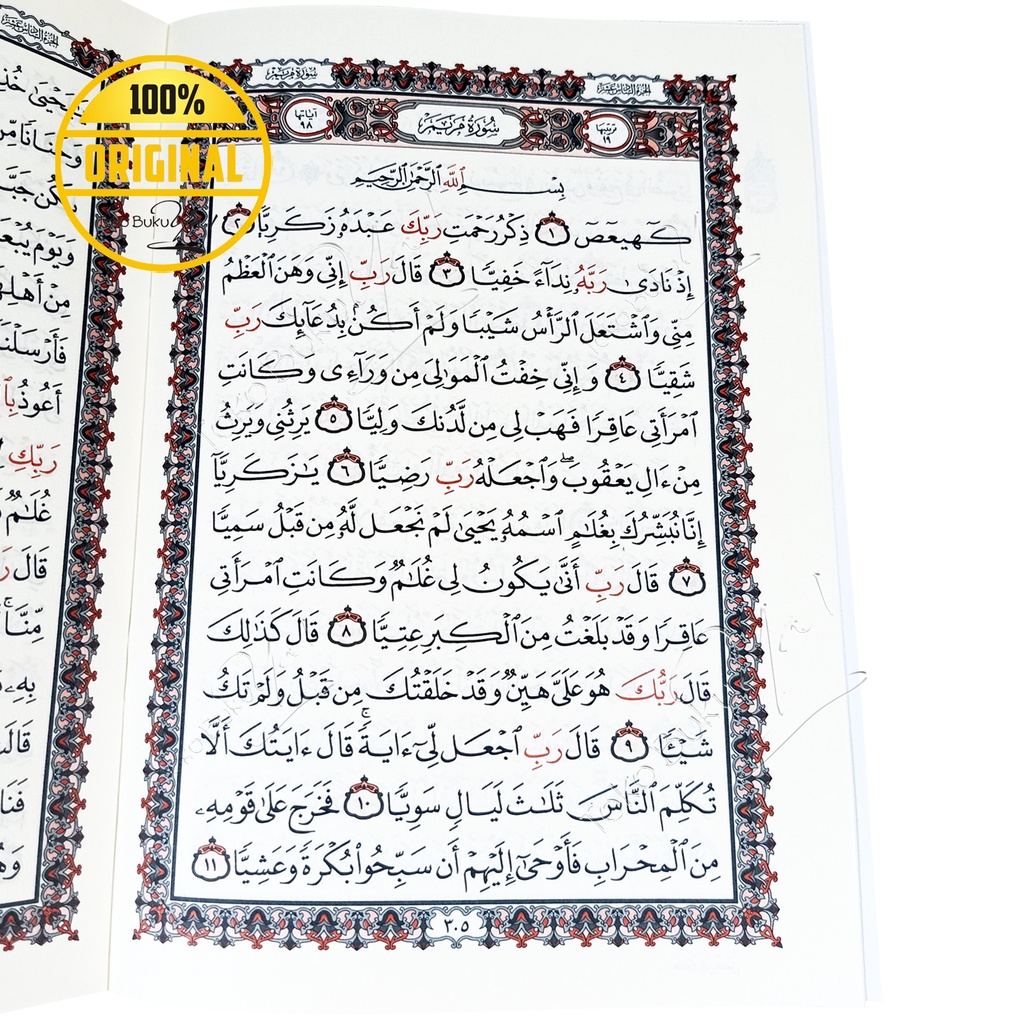 الجزء السادس عشر
سورة مريم
ترتيبها ١٩
سورة مريم
آياتها ٩٨
بِسْمِ ٱللَّهِ ٱلرَّحْمَٰنِ ٱلرَّحِيمِ
كٓهيعٓصٓ ١ ذِكْرُ رَحْمَتِ رَبِّكَ عَبْدَهُۥ زَكَرِيَّآ ٢
إِذْ نَادَىٰ رَبَّهُۥ نِدَآءً خَفِيًّا ٣ قَالَ رَبِّ إِنِّى وَهَنَ ٱلْعَظْمُ
مِنِّى وَٱشْتَعَلَ ٱلرَّأْسُ شَيْبًا وَلَمْ أَكُنۢ بِدُعَآئِكَ رَبِّ
شَقِيًّا ٤ وَإِنِّى خِفْتُ ٱلْمَوَٰلِىَ مِن وَرَآءِى وَكَانَتِ
ٱمْرَأَتِى عَاقِرًا فَهَبْ لِى مِن لَّدُنكَ وَلِيًّا ٥ يَرِثُنِى وَيَرِثُ
مِنْ ءَالِ يَعْقُوبَ ۖ وَٱجْعَلْهُ رَبِّ رَضِيًّا ٦ يَٰزَكَرِيَّآ
إِنَّا نُبَشِّرُكَ بِغُلَٰمٍ ٱسْمُهُۥ يَحْيَىٰ لَمْ نَجْعَل لَّهُۥ مِن قَبْلُ سَمِيًّا
٧ قَالَ رَبِّ أَنَّىٰ يَكُونُ لِى غُلَٰمٌ وَكَانَتِ ٱمْرَأَتِى
عَاقِرًا وَقَدْ بَلَغْتُ مِنَ ٱلْكِبَرِ عِتِيًّا ٨ قَالَ كَذَٰلِكَ
قَالَ رَبُّكَ هُوَ عَلَىَّ هَيِّنٌ وَقَدْ خَلَقْتُكَ مِن قَبْلُ وَلَمْ تَكُ
شَيْـًٔا ٩ قَالَ رَبِّ ٱجْعَل لِّىٓ ءَايَةً ۚ قَالَ ءَايَتُكَ أَلَّا
تُكَلِّمَ ٱلنَّاسَ ثَلَٰثَ لَيَالٍ سَوِيًّا ١٠ فَخَرَجَ عَلَىٰ قَوْمِهِۦ
مِنَ ٱلْمِحْرَابِ فَأَوْحَىٰٓ إِلَيْهِمْ أَن سَبِّحُوا۟ بُكْرَةً وَعَشِيًّا ١١
٣٠٥
وَحَنَانًا
وَيَوْمَ
مِنْ أَهْلِهَا
أَعُوذُ
رَبِّكِ
قَالَ
مِّنَّا
بِهِۦ
100%
ORIGINAL